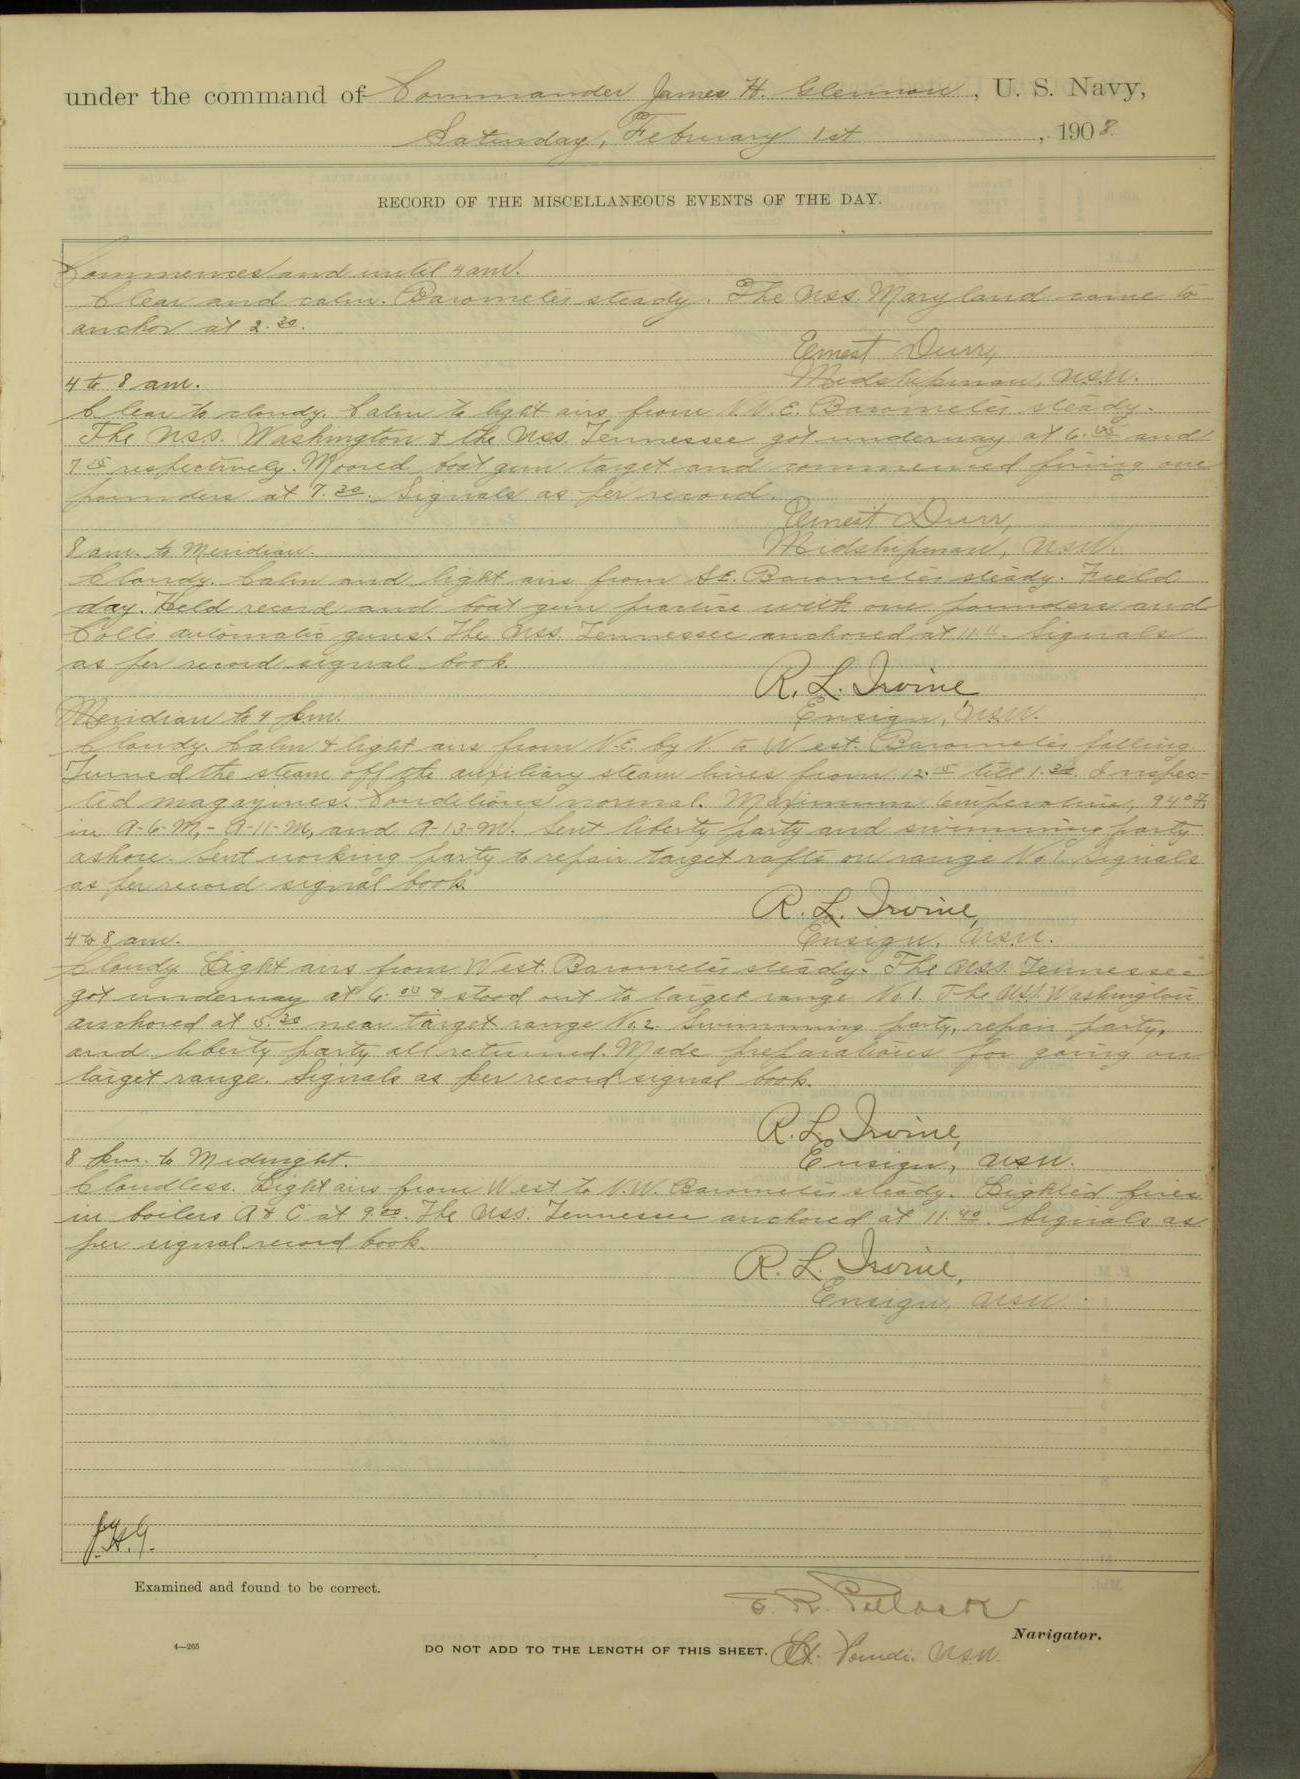 under the command of Commander James H. Glennon, U. S. Navy,
Saturday, February 1st, 1908.
RECORD OF THE MISCELLANEOUS EVENTS OF THE DAY.
Commences and until 4 am.
Clear and calm. Barometer steady. The USS. Maryland came to
anchor at 2.30.
Ernest Durr,
Midshipman, USN.
4 to 8 am.
Clear to cloudy. Calm to light airs from N.N.E. Barometer steady.
The USS. Washington & the USS. Tennessee got underway at 6.05 and
7.15 respectively. Moored boat gun target and commenced firing one
pounders at 7.30. Signals as per record.
Ernest Durr,
Midshipman, USN.
8 am. to Meridian.
Cloudy. Calm and light airs from SE. Barometer steady. Field
day. Held record and boat gun practice with one pounders and
Colt's automatic guns. The USS. Tennessee anchored at 11.11. Signals
as per record signal book.
R. L. Irvine,
Ensign, USN.
Meridian to 4 pm.
Cloudy. Calm & light airs from N.E. by N. to West. Barometer falling.
Turned the steam off the auxiliary steam lines from 12.15 till 1.30. Inspec-
ted magazines. Conditions normal. Maximum temperature, 94°F.
in A-6-M,- A-11-M, and A-13-M. Sent liberty party and swimming party
ashore. Sent working party to repair target rafts on range No 1. Signals
as per record signal book.
R. L. Irvine,
Ensign, USN.
4 to 8 am.
Cloudy. Light airs from West. Barometer steady. The USS. Tennessee
got underway at 4.00 & stood out to target range No 1. The USS. Washington
anchored at 5.30 near target range No. 2. Swimming party, repair party,
and liberty party all returned. Made preparations for going on
target range. Signals as per record signal book.
R. L. Irvine,
Ensign, USN.
8 pm. to Midnight.
Cloudless. Light airs from West to N.W. Barometer steady. Lighted fires
in boilers A & C at 9.00. The USS. Tennessee anchored at 11.40. Signals as
per signal record book.
R. L. Irvine,
Ensign, USN.
J.H.G.
Examined and found to be correct.
E. R. Pollock
Navigator.
4—265
DO NOT ADD TO THE LENGTH OF THIS SHEET.
Lt. Comdr. USN.